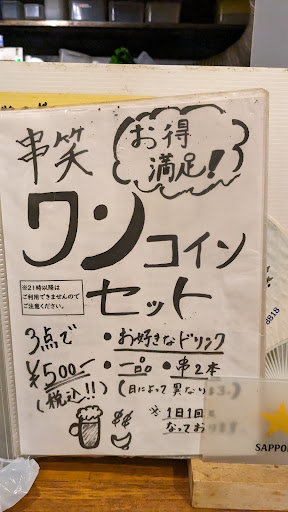 串笑
お得
満足!
ワンコイン
セット
※21時以降は
ご利用できませんので
ご注意ください。
3点で
¥500-
(税込!!)
・お好きなドリンク
・一品・串2本
(日によって異なります。)
※1日1回と
なっております。
SAPPO